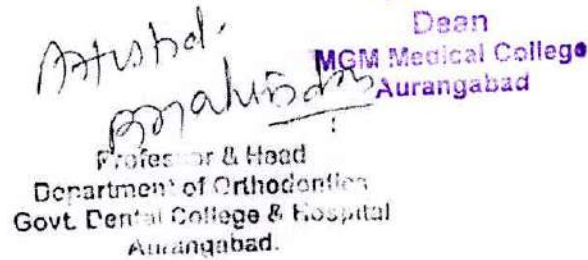 Dean
MGM Medical College
Aurangabad
Attested.
Professor & Head
Department of Orthodontics
Govt. Dental College & Hospital
Aurangabad.